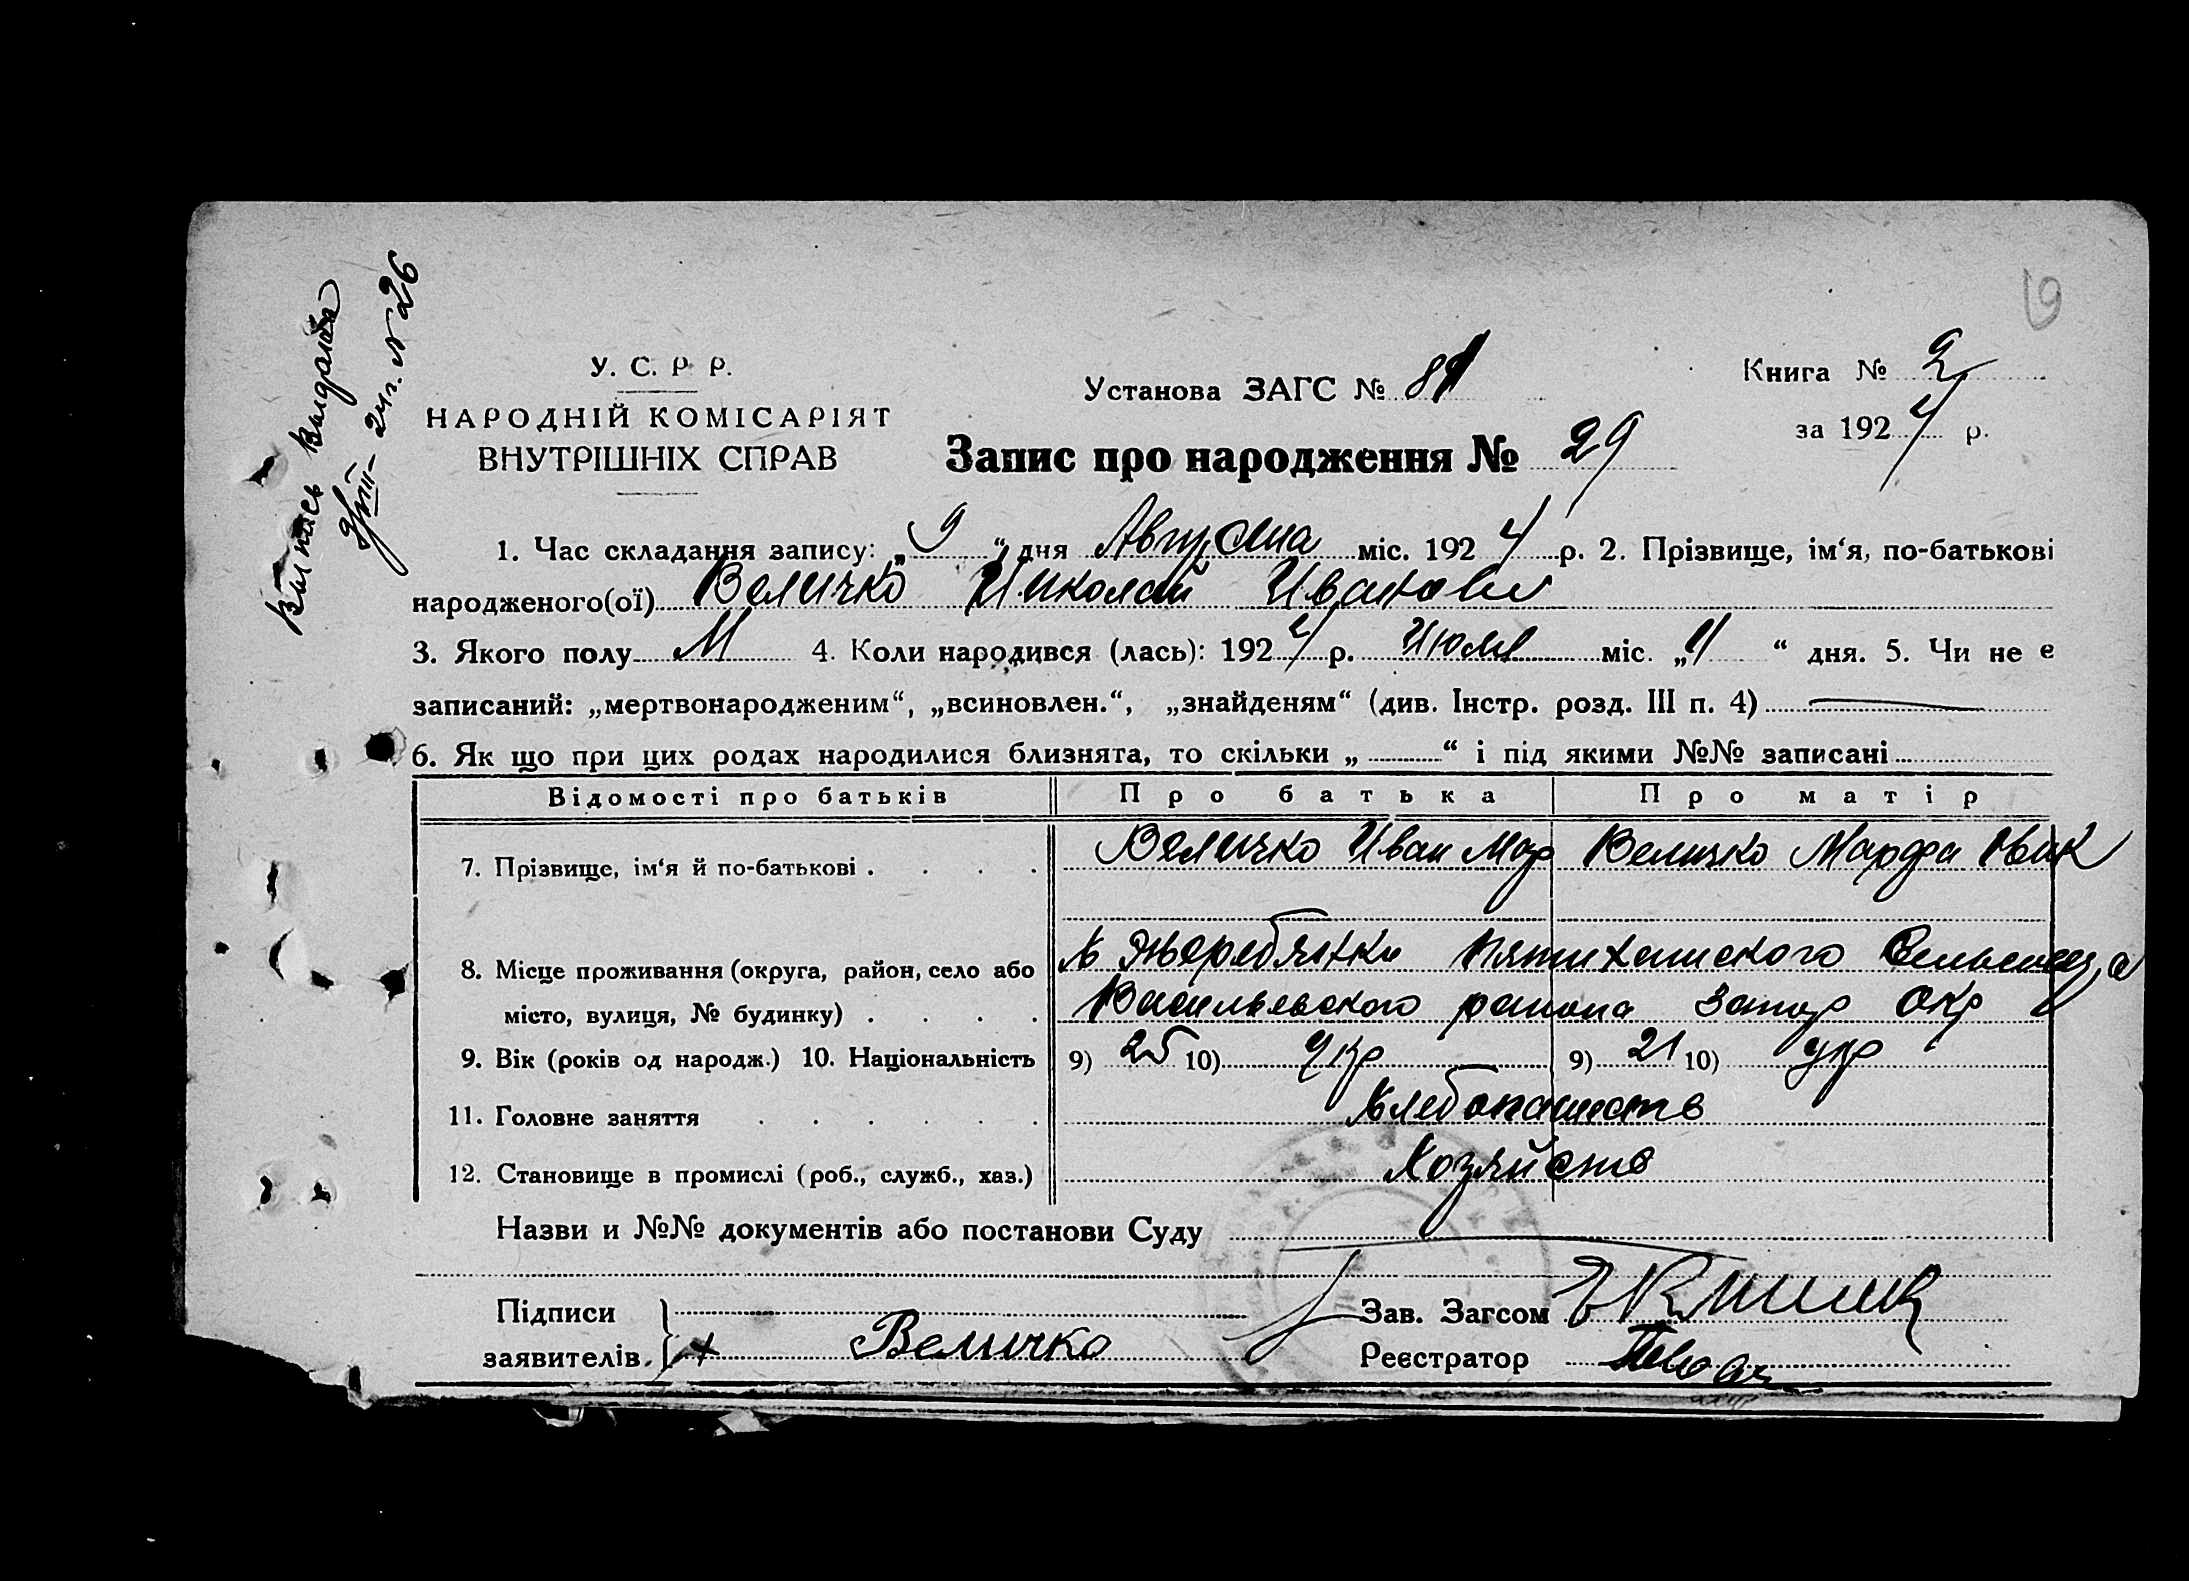 Выпись выдана
9/VIII - 24 г. N 26
У. С. Р. Р.
НАРОДНІЙ КОМІСАРІЯТ
ВНУТРІШНІХ СПРАВ
Установа ЗАГС № 81
Книга № 2
за 1924 р.
Запис про народження № 29
1. Час складання запису: „9“ дня Августа міс. 1924 р. 2. Прізвище, ім‘я, по-батькові
народженого(ої) Величко Николай Иванови
3. Якого полу М 4. Коли народився (лась): 1924 р. Июля міс. „ “ дня. 5. Чи не є
записаний: „мертвонародженим“, „всиновлен.“, „знайденям“ (див. Інстр. розд. III п. 4)
6. Як що при цих родах народилися близнята, то скільки „ “ і під якими №№ записані
Відомості про батьків Про батька Про матір
7. Прізвище, ім‘я й по-батькові . . . . Величко Иван Мар Величко Марфа Ивак
8. Місце проживання (округа, район, село або х Жеребянки Пятихатского Сельсовета
місто, вулиця, № будинку) . . . . Васильевского района Запор Окр
9. Вік (років од народж.) 10. Національність 9) 25 10) Укр 9) 21 10) укр
11. Головне заняття . . . . . . Хлебопашеств
12. Становище в промислі (роб., служб., хаз.) Хозяйств
Назви и №№ документів або постанови Суду
Підписи
заявителів. + Величко
Зав. Загсом
Реєстратор